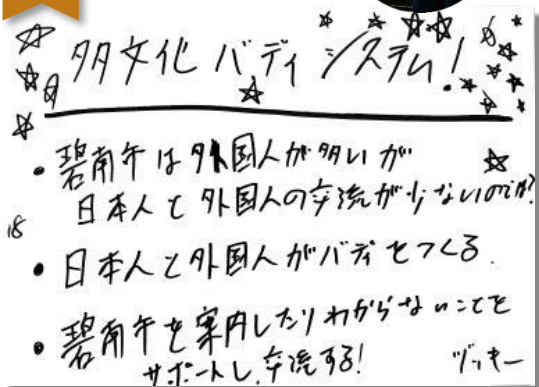 多文化バディシステム!
・碧南市は外国人が多いが
日本人と外国人の交流が少ないのでは?
18
・日本人と外国人がバディをつくる.
・碧南市を案内したりわからないことを
サポートし、交流する!
づっきー